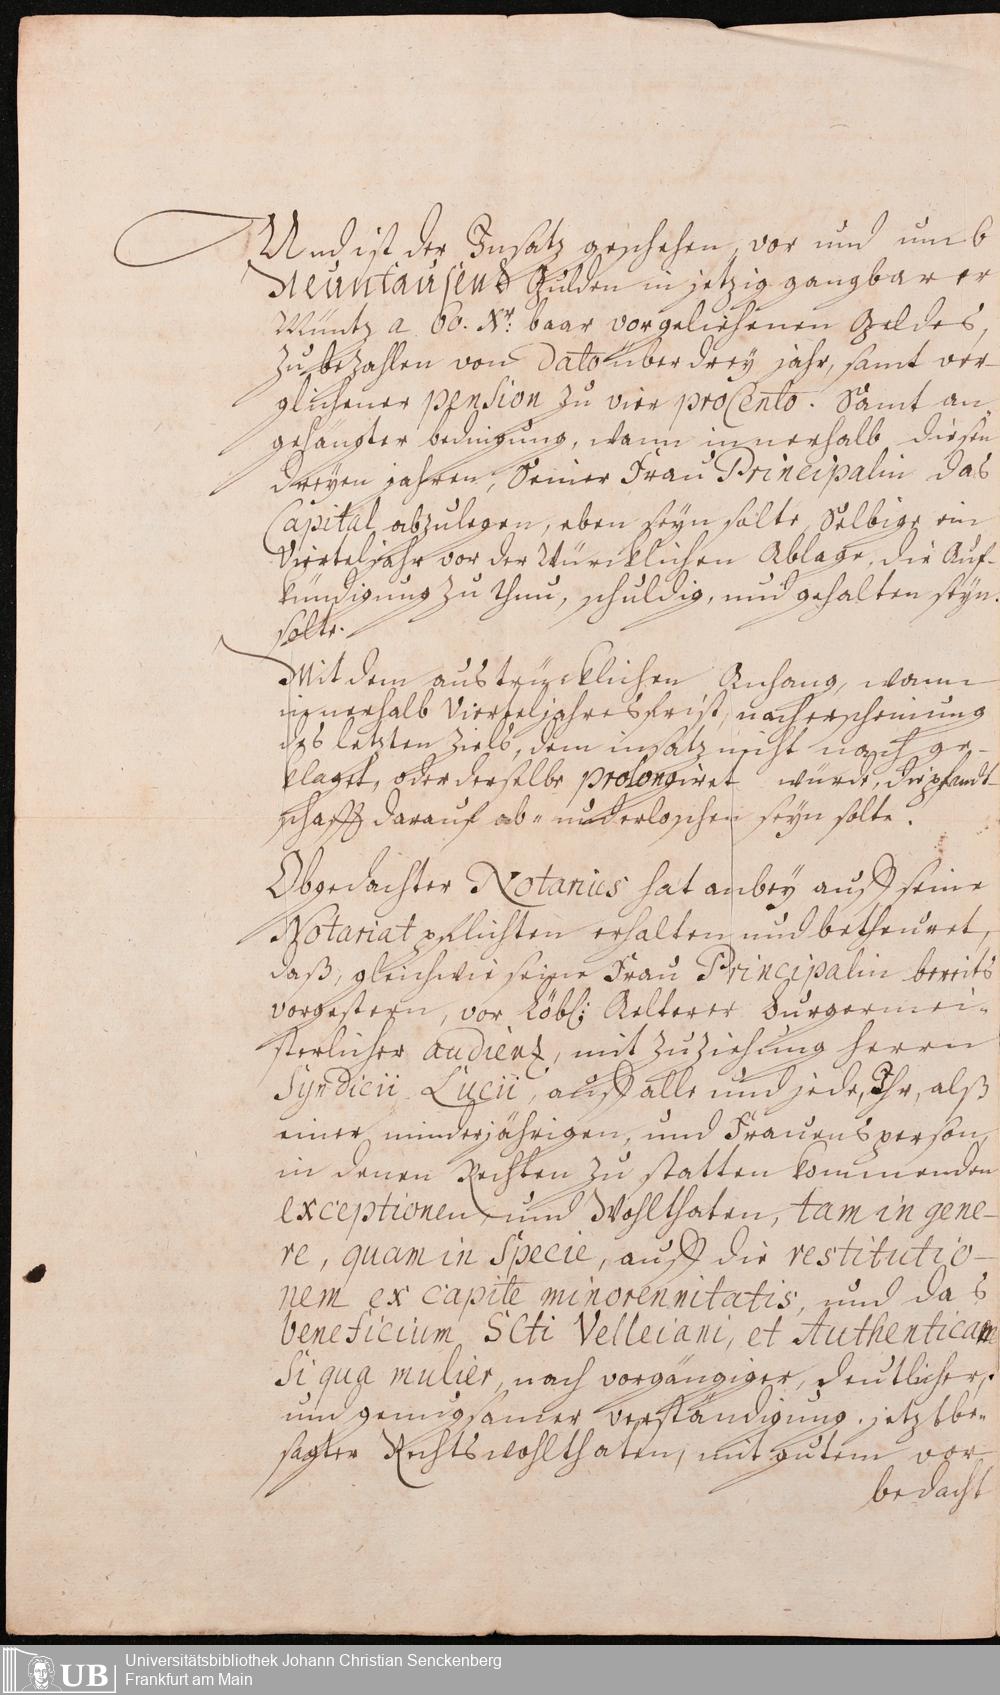 Und ist der Insatz geschehen, vor und umb
Neuntausend Gulden in jetzig gangbarer
Müntz a 60. Xr. baar vorgeliehenen Geldes,
zu bezahlen von Dato über drey jahr, samt ver-
glichener pension zu vier proCento. Samt an-
gehängter bedingung, wann innerhalb diesen
dreyen jahren, Seiner Frau Principalin das
Capital abzulegen, eben seyn solte, Selbige ein
Vierteljahr vor der Würcklichen Ablage, die Auf-
kündigung zu thun, schuldig, und gehalten seyn
solte.
Mit dem austrücklichen Anhang, wann
innerhalb Vierteljahresfrist, nach erscheinung
des letzten Ziels, dem insatz nicht nach ge-
klaget, oder derselbe prolongiret würde, die pfandt-
schafft darauf ab- und erloschen seyn solte.
Obgedachter Notarius hat anbey auff seine
Notariat pflichten erhalten und betheuret,
daß, gleichwie seine Frau Principalin bereits
vorgestern, vor Löbl: Aelterer Burgermei-
sterlicher Audientz, mit zuziehung Herrn
Syndicii Lucii, auff alle und jede, Ihr, alß
einer minderjährigen, und Frauensperson,
in denen Rechten zu statten kommenden
exceptionen, und Wohlthaten, tam in gene-
re, quam in Specie, auff die restitutio-
nem ex capite minorennitatis, und das
beneficium SCti Velleiani, et Authenticae
Si qua mulier, nach vorgängiger, deutlicher,
und genugsamer verständigung jetztbe-
sagter Rechtswohlthaten, mit gutem vor
bedacht
UB
Universitätsbibliothek Johann Christian Senckenberg
Frankfurt am Main